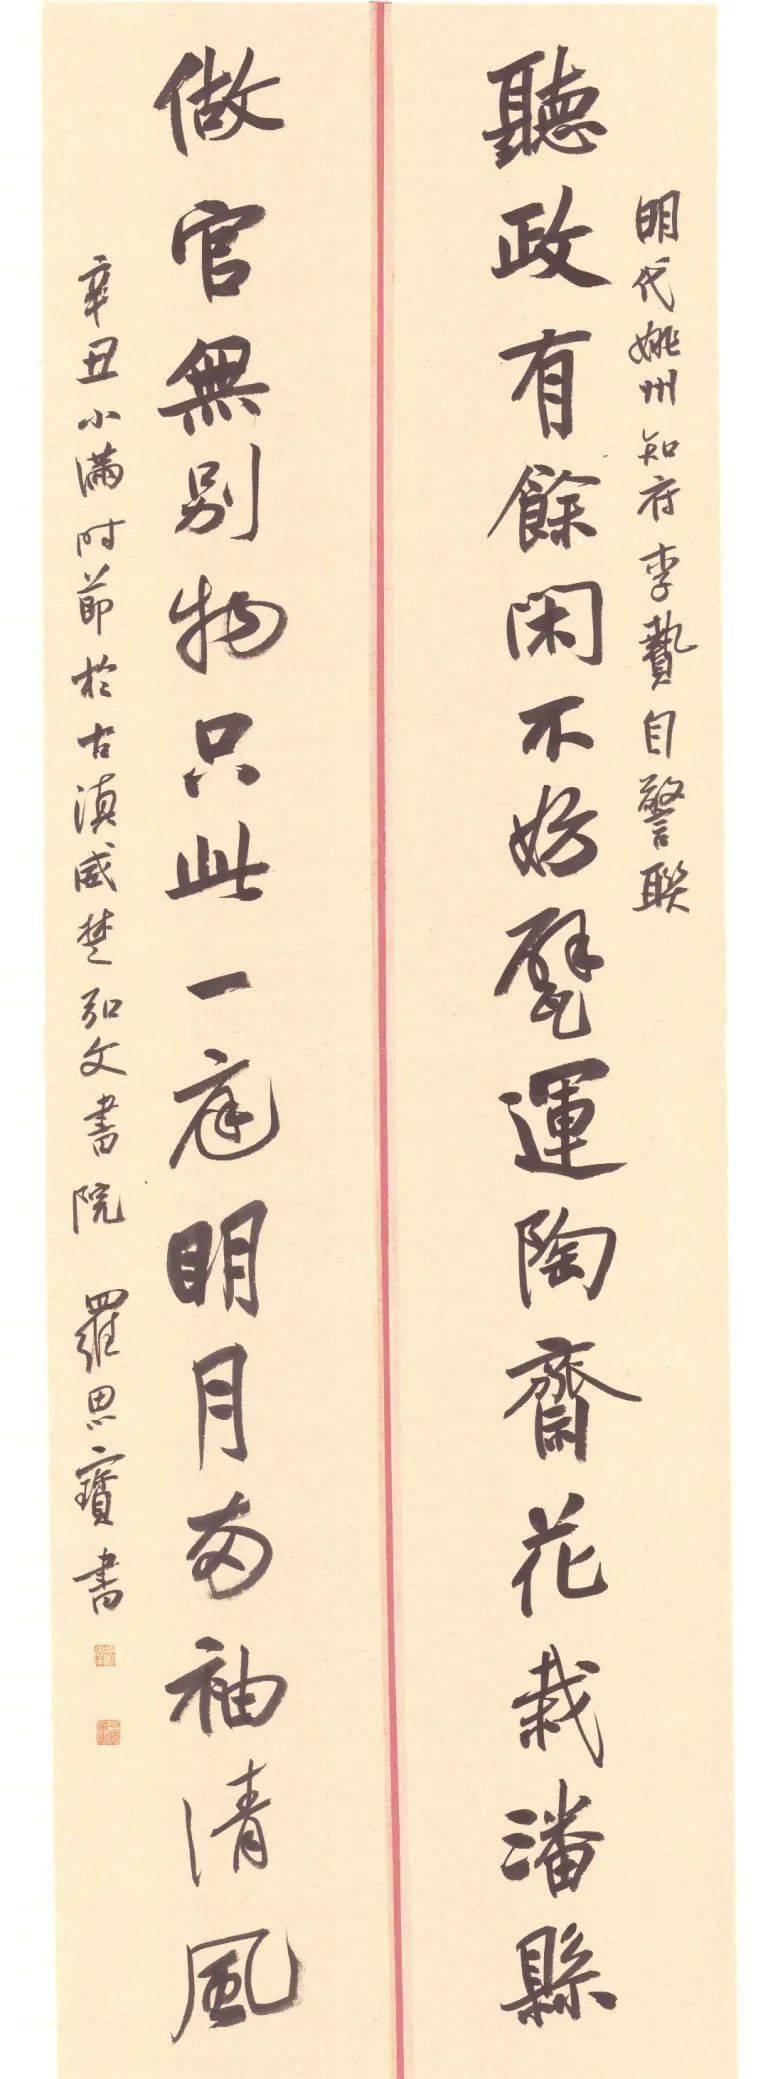 明代姚州知府李贄自警聯
聽政有餘閑不妨甓運陶齋花栽潘縣
做官無别物只此一庭明月兩袖清風
辛丑小滿时節於古滇威楚弘文書院 羅思寶書